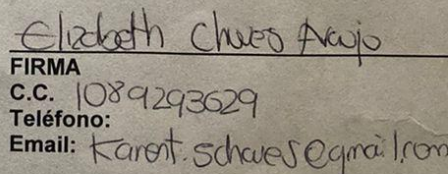 Elizabeth Chaves Araujo
FIRMA
C.C. 1089293629
Teléfono:
Email: Karent.schaves@gmail.com